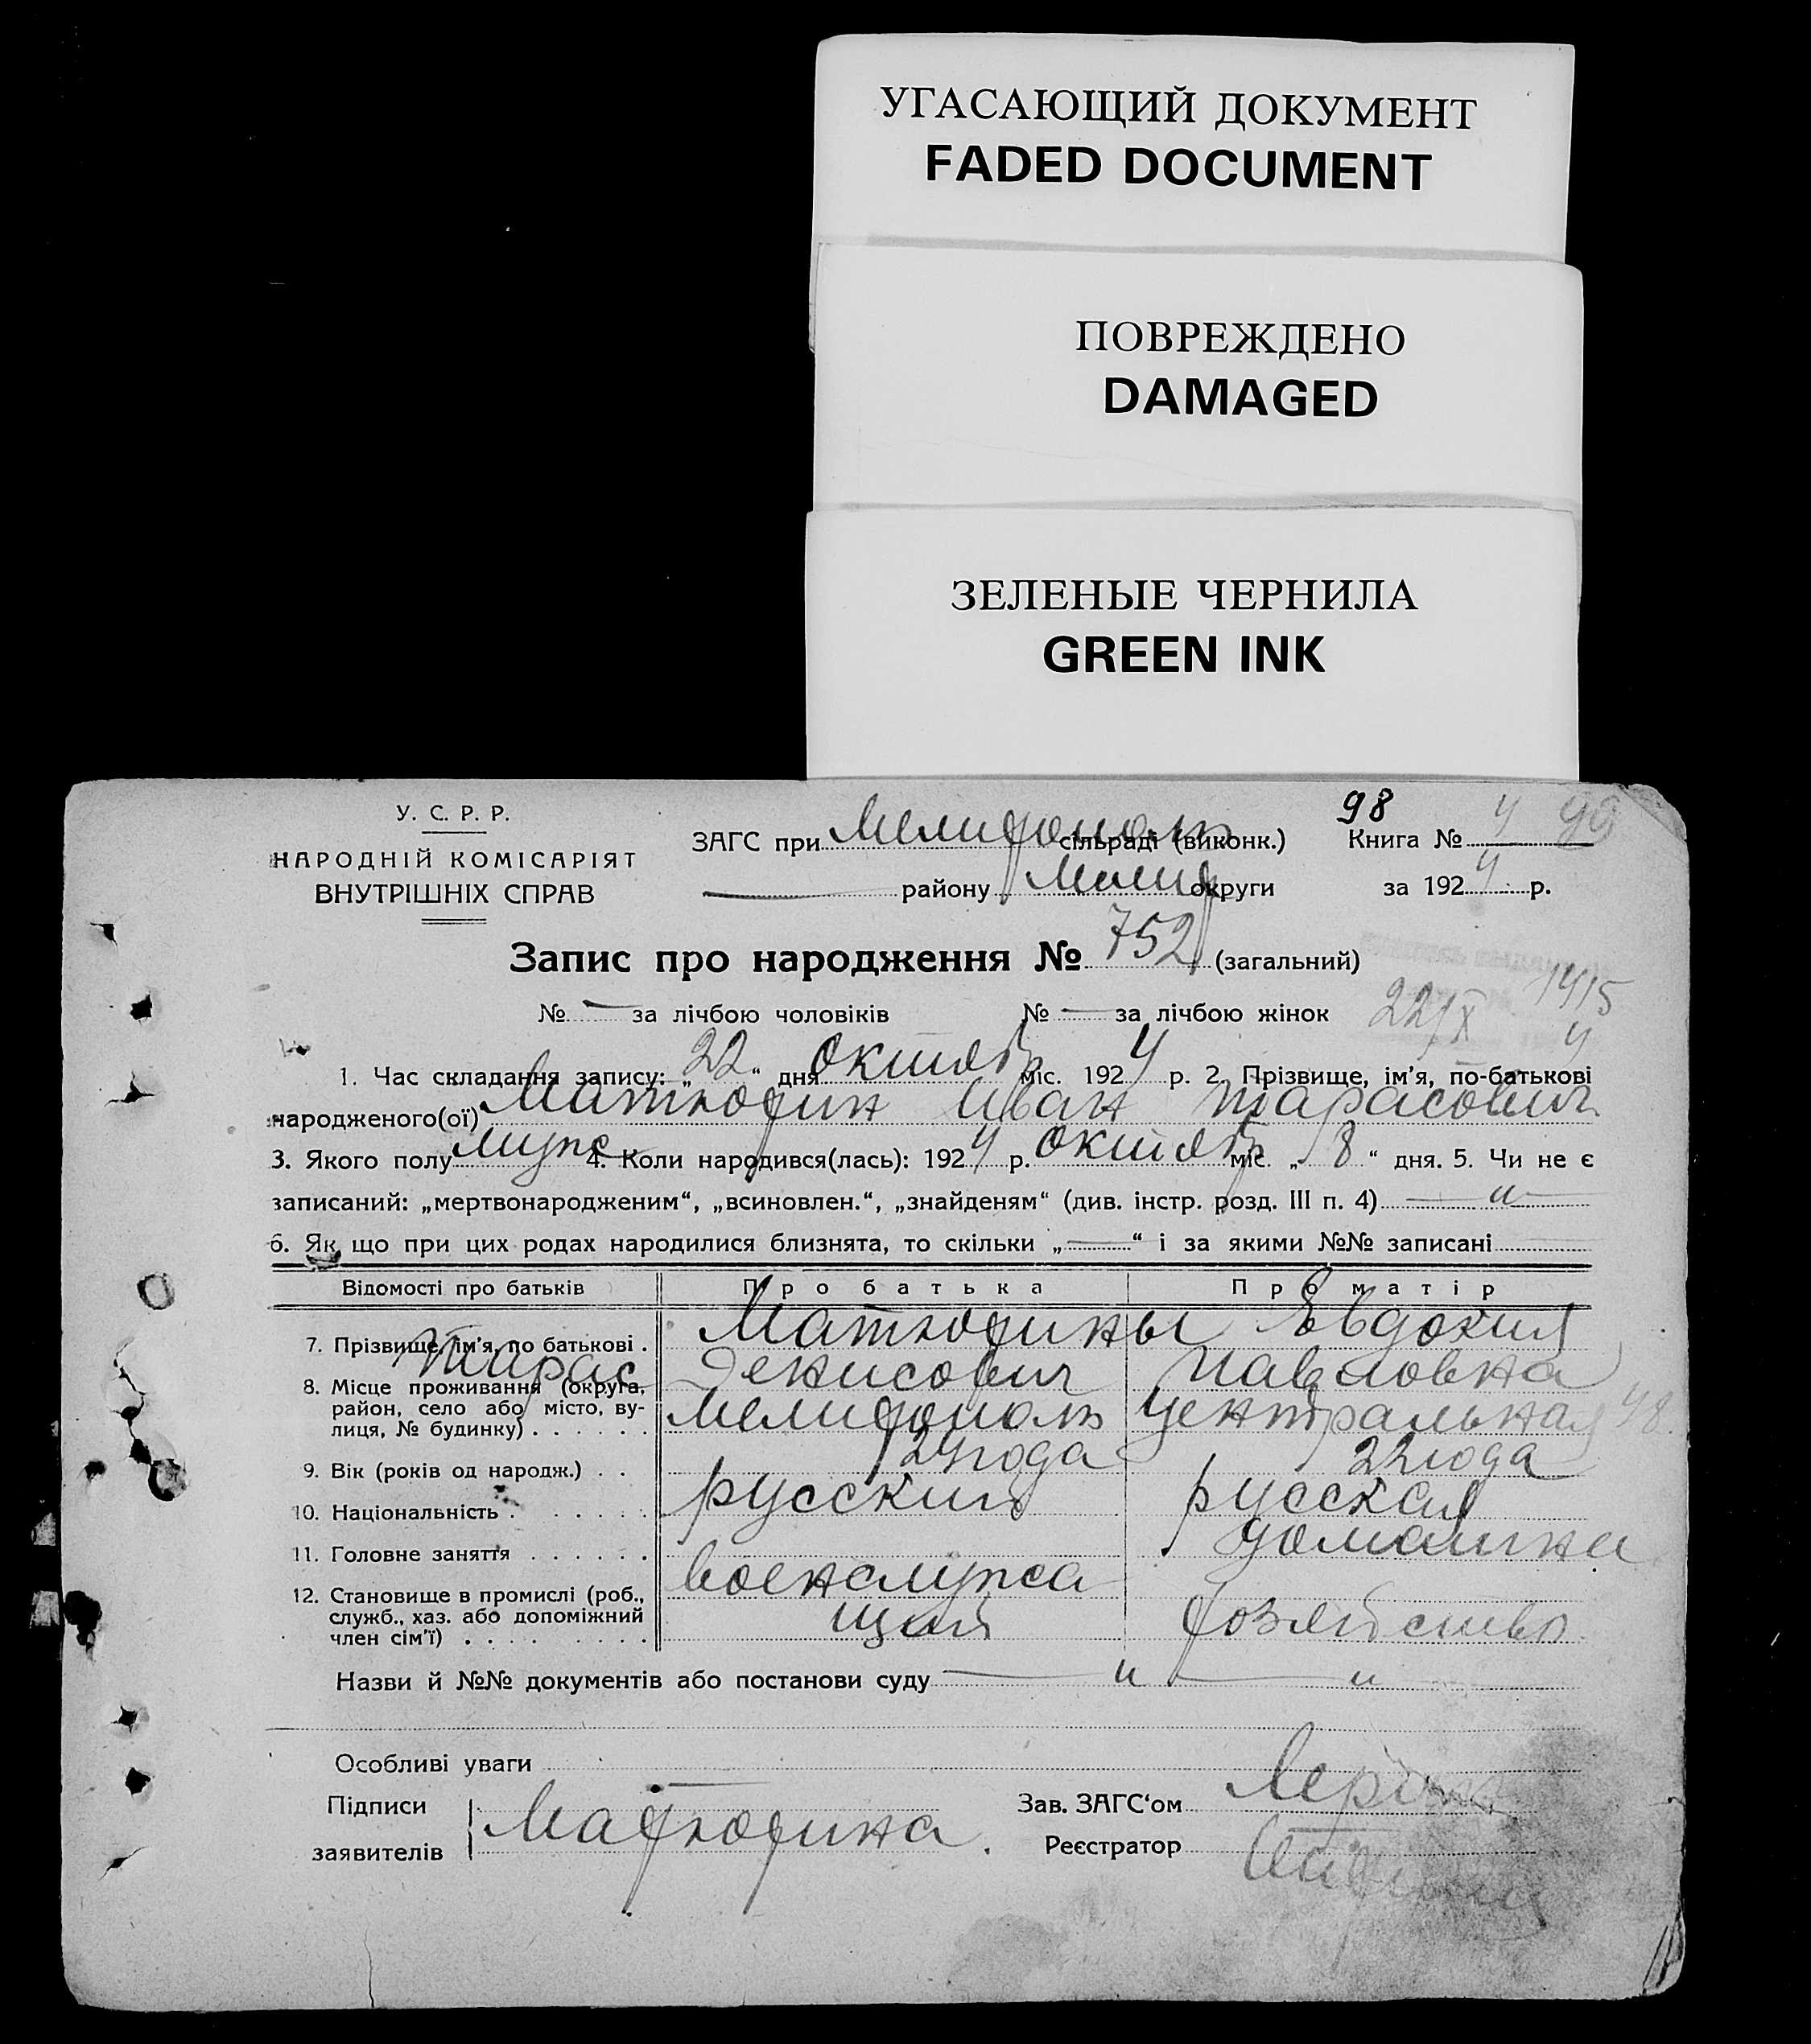 УГАСАЮЩИЙ ДОКУМЕНТ
FADED DOCUMENT
ПОВРЕЖДЕНО
DAMAGED
ЗЕЛЕНЫЕ ЧЕРНИЛА
GREEN INK
У. С. Р. Р.
НАРОДНІЙ КОМІСАРІЯТ
ВНУТРІШНІХ СПРАВ
98 99
ЗАГС при Мелитополь сільраді (виконк.) Книга № 4
— району Мелит округи за 1924 р.
Запис про народження № 752 (загальний)
№ — за лічбою чоловіків № — за лічбою жінок
22/X 1415
1. Час складання запису: „22“ дня октяб міс. 1924 р. 2. Прізвище, ім’я, по-батькові
народженого(ої) Матюфин Иван Тарасович
3. Якого полу муж 4. Коли народився(лась): 1924 р. октяб міс. „8“ дня. 5. Чи не є
записаний: „мертвонародженим“, „всиновлен.“, „знайденям“ (див. інстр. розд. III п. 4) — „ —
6. Як що при цих родах народилися близнята, то скільки „—“ і за якими №№ записані
Відомості про батьків Про батька Про матір
7. Прізвище, ім’я, по батькові . Матюфины Евдокия
Тарас Денисович Павловна
8. Місце проживання (округа,
район, село або місто, ву-
лиця, № будинку) . . . . . . Мелитополь Центральная 48.
9. Вік (років од народж.) . . 24 года 22 года
10. Національність . . . . . . русский русская
11. Головне заняття . . . . . . домашнее
12. Становище в промислі (роб., военслужа
служб., хаз. або допоміжний
член сім’ї) . . . . . . . . . щий хозяйство
Назви й №№ документів або постанови суду — „ — „ —
Особливі уваги —
Підписи
заявителів Матюфина.
Зав. ЗАГС‘ом
Реєстратор